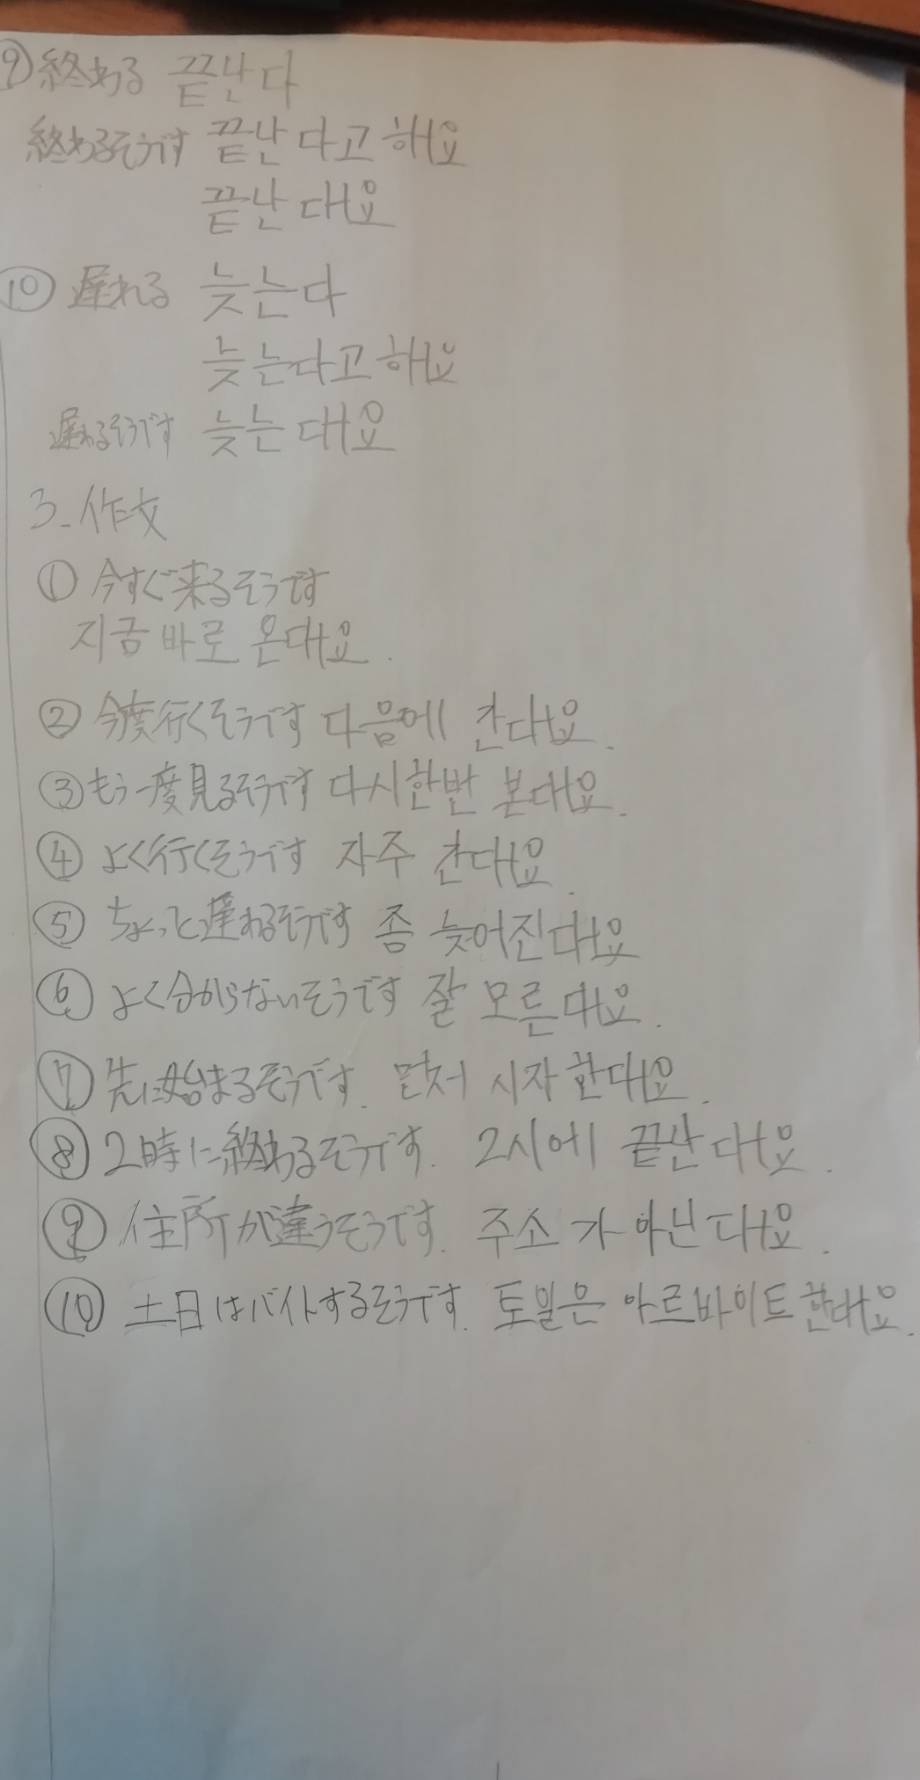 ⑨終わる 끝난다
終わるそうです 끝난다고 해요
끝난대요
⑩遅れる 늦는다
늦는다고 해요
遅れるそうです 늦는대요
3. 作文
①今すぐ来るそうです
지금 바로 온대요.
②今度行くそうです 다음에 간대요.
③もう一度見るそうです 다시 한번 본대요.
④よく行くそうです 자주 간대요.
⑤ちょっと遅れるそうです 좀 늦어진대요
⑥よく分からないそうです 잘 모른대요.
⑦先に始まるそうです. 먼저 시작한대요.
⑧2時に終わるそうです. 2시에 끝난대요.
⑨住所が違うそうです. 주소가 아닌대요.
⑩土日はバイトするそうです. 토일은 아르바이트한대요.